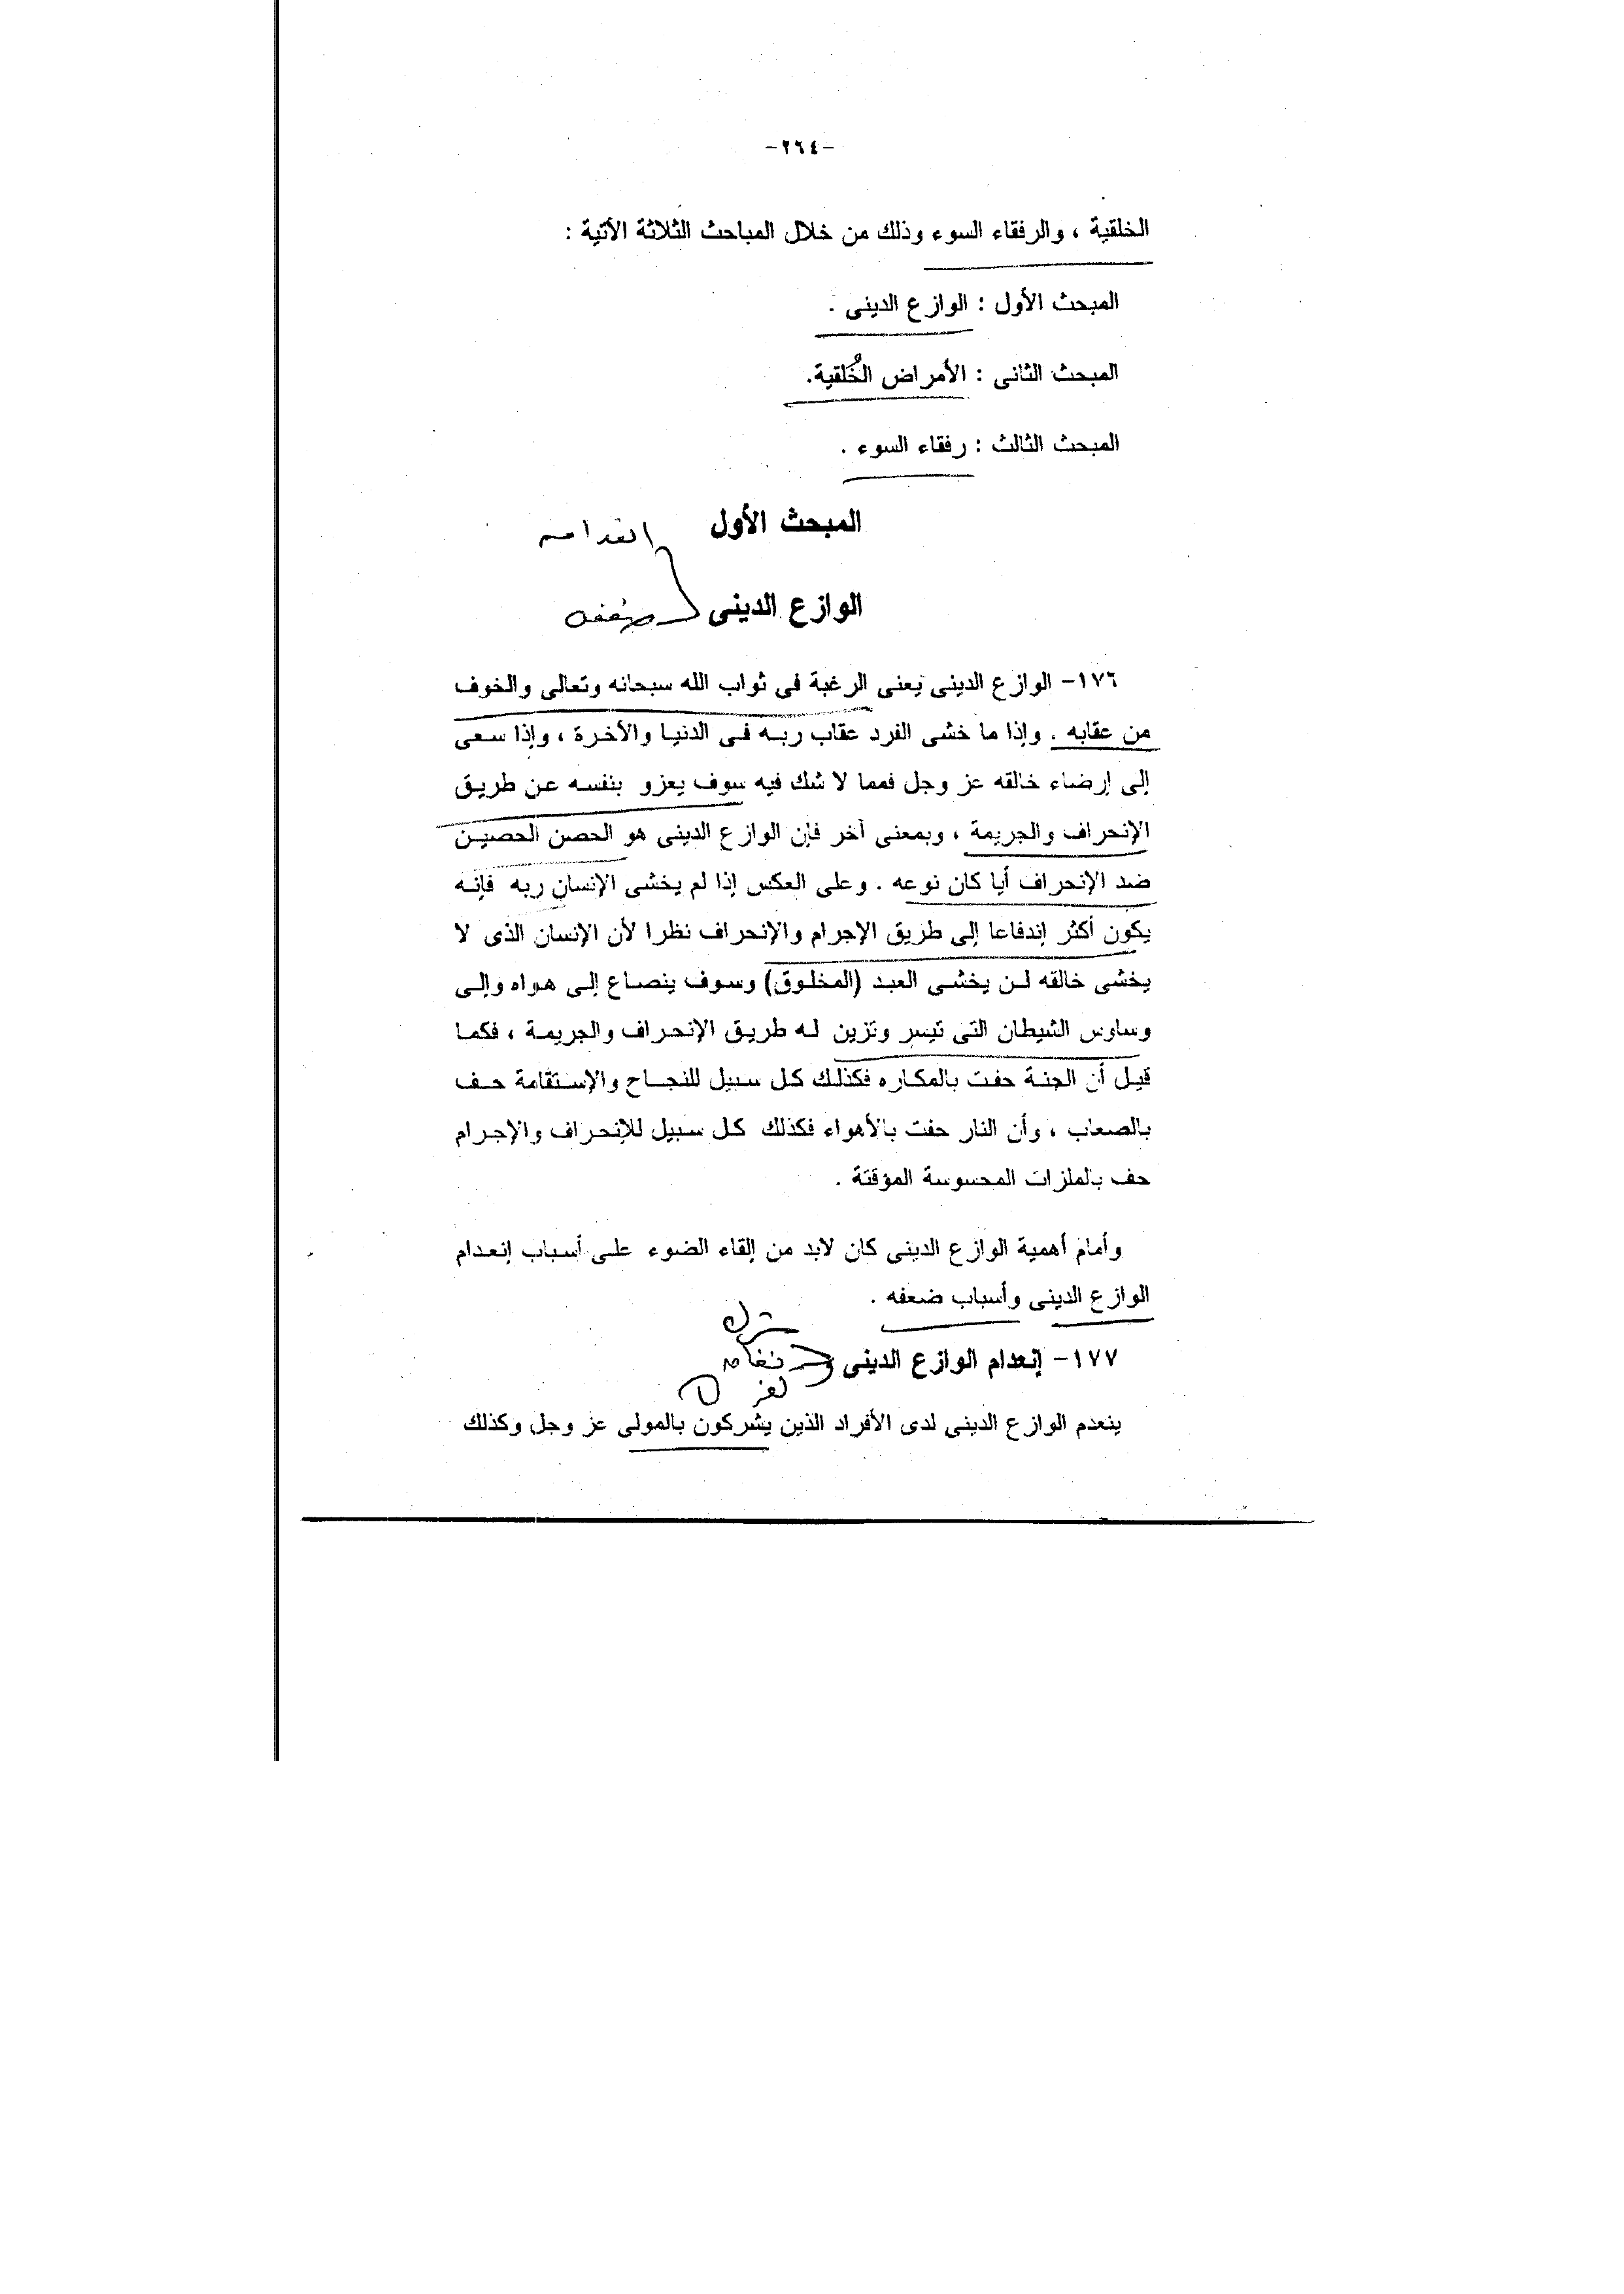 -٢٦٤-
الخلقية ، والرفقاء السوء وذلك من خلال المباحث الثلاثة الأتية :
المبحث الأول : الوازع الدينى .
المبحث الثانى : الأمراض الخُلقية.
المبحث الثالث : رفقاء السوء .
المبحث الأول
انعدامه
الوازع الدينى
ضعفه
١٧٦- الوازع الدينى يعنى الرغبة فى ثواب الله سبحانه وتعالى والخوف
من عقابه . وإذا ما خشى الفرد عقاب ربه فى الدنيا والأخرة ، وإذا سعى
إلى إرضاء خالقه عز وجل فمما لا شك فيه سوف يعزو بنفسه عن طريق
الإنحراف والجريمة ، وبمعنى آخر فإن الوازع الدينى هو الحصن الحصين
ضد الإنحراف أيا كان نوعه . وعلى العكس إذا لم يخشى الإنسان ربه فإنه
يكون أكثر إندفاعا إلى طريق الإجرام والإنحراف نظرا لأن الإنسان الذى لا
يخشى خالقه لن يخشى العبد (المخلوق) وسوف ينصاع إلى هواه وإلى
وساوس الشيطان التى تيسر وتزين له طريق الإنحراف والجريمة ، فكما
قيل أن الجنة حفت بالمكاره فكذلك كل سبيل للنجاح والإستقامة حف
بالصعاب ، وأن النار حفت بالأهواء فكذلك كل سبيل للإنحراف والإجرام
حف بالملزات المحسوسة المؤقتة .
وأمام أهمية الوازع الدينى كان لابد من إلقاء الضوء على أسباب إنعدام
الوازع الدينى وأسباب ضعفه .
١٧٧- إنعدام الوازع الدينى
ينعدم الوازع الدينى لدى الأفراد الذين يشركون بالمولى عز وجل وكذلك